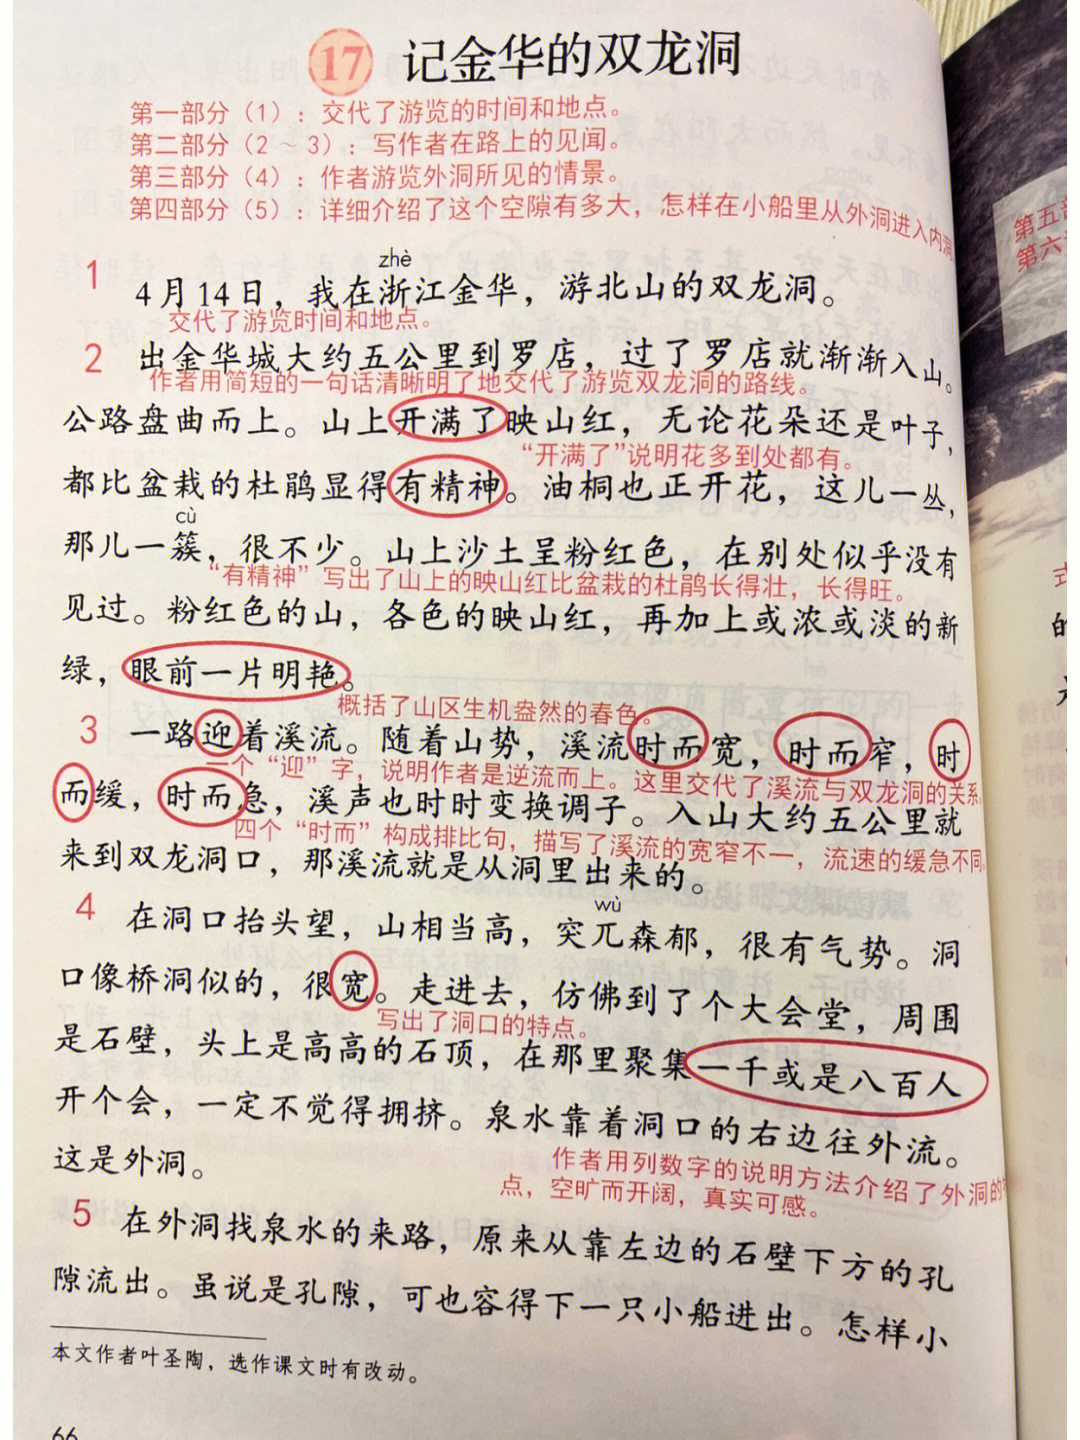 17 记金华的双龙洞
第一部分（1）：交代了游览的时间和地点。
第二部分（2～3）：写作者在路上的见闻。
第三部分（4）：作者游览外洞所见的情景。
第四部分（5）：详细介绍了这个空隙有多大，怎样在小船里从外洞进入内洞
第五部
第六部
zhè
1 4月14日，我在浙江金华，游北山的双龙洞。
交代了游览时间和地点。
2 出金华城大约五公里到罗店，过了罗店就渐渐入山。
作者用简短的一句话清晰明了地交代了游览双龙洞的路线。
公路盘曲而上。山上开满了映山红，无论花朵还是叶子，
“开满了”说明花多到处都有。
都比盆栽的杜鹃显得有精神。油桐也正开花，这儿一丛，
cù
那儿一簇，很不少。山上沙土呈粉红色，在别处似乎没有
“有精神”写出了山上的映山红比盆栽的杜鹃长得壮，长得旺。
见过。粉红色的山，各色的映山红，再加上或浓或淡的新
绿，眼前一片明艳。
概括了山区生机盎然的春色。
3 一路迎着溪流。随着山势，溪流时而宽，时而窄，时
一个“迎”字，说明作者是逆流而上。这里交代了溪流与双龙洞的关系
而缓，时而急，溪声也时时变换调子。入山大约五公里就
四个“时而”构成排比句，描写了溪流的宽窄不一，流速的缓急不同
来到双龙洞口，那溪流就是从洞里出来的。
wù
4 在洞口抬头望，山相当高，突兀森郁，很有气势。洞
口像桥洞似的，很宽。走进去，仿佛到了个大会堂，周围
写出了洞口的特点。
是石壁，头上是高高的石顶，在那里聚集一千或是八百人
开个会，一定不觉得拥挤。泉水靠着洞口的右边往外流。
这是外洞。
作者用列数字的说明方法介绍了外洞的
点，空旷而开阔，真实可感。
5 在外洞找泉水的来路，原来从靠左边的石壁下方的孔
隙流出。虽说是孔隙，可也容得下一只小船进出。怎样小
本文作者叶圣陶，选作课文时有改动。
66